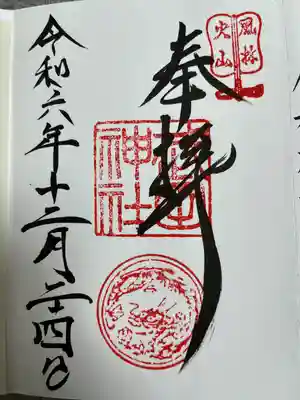 風林
火山
奉拝
武田
神社
令和六年十二月二十四日